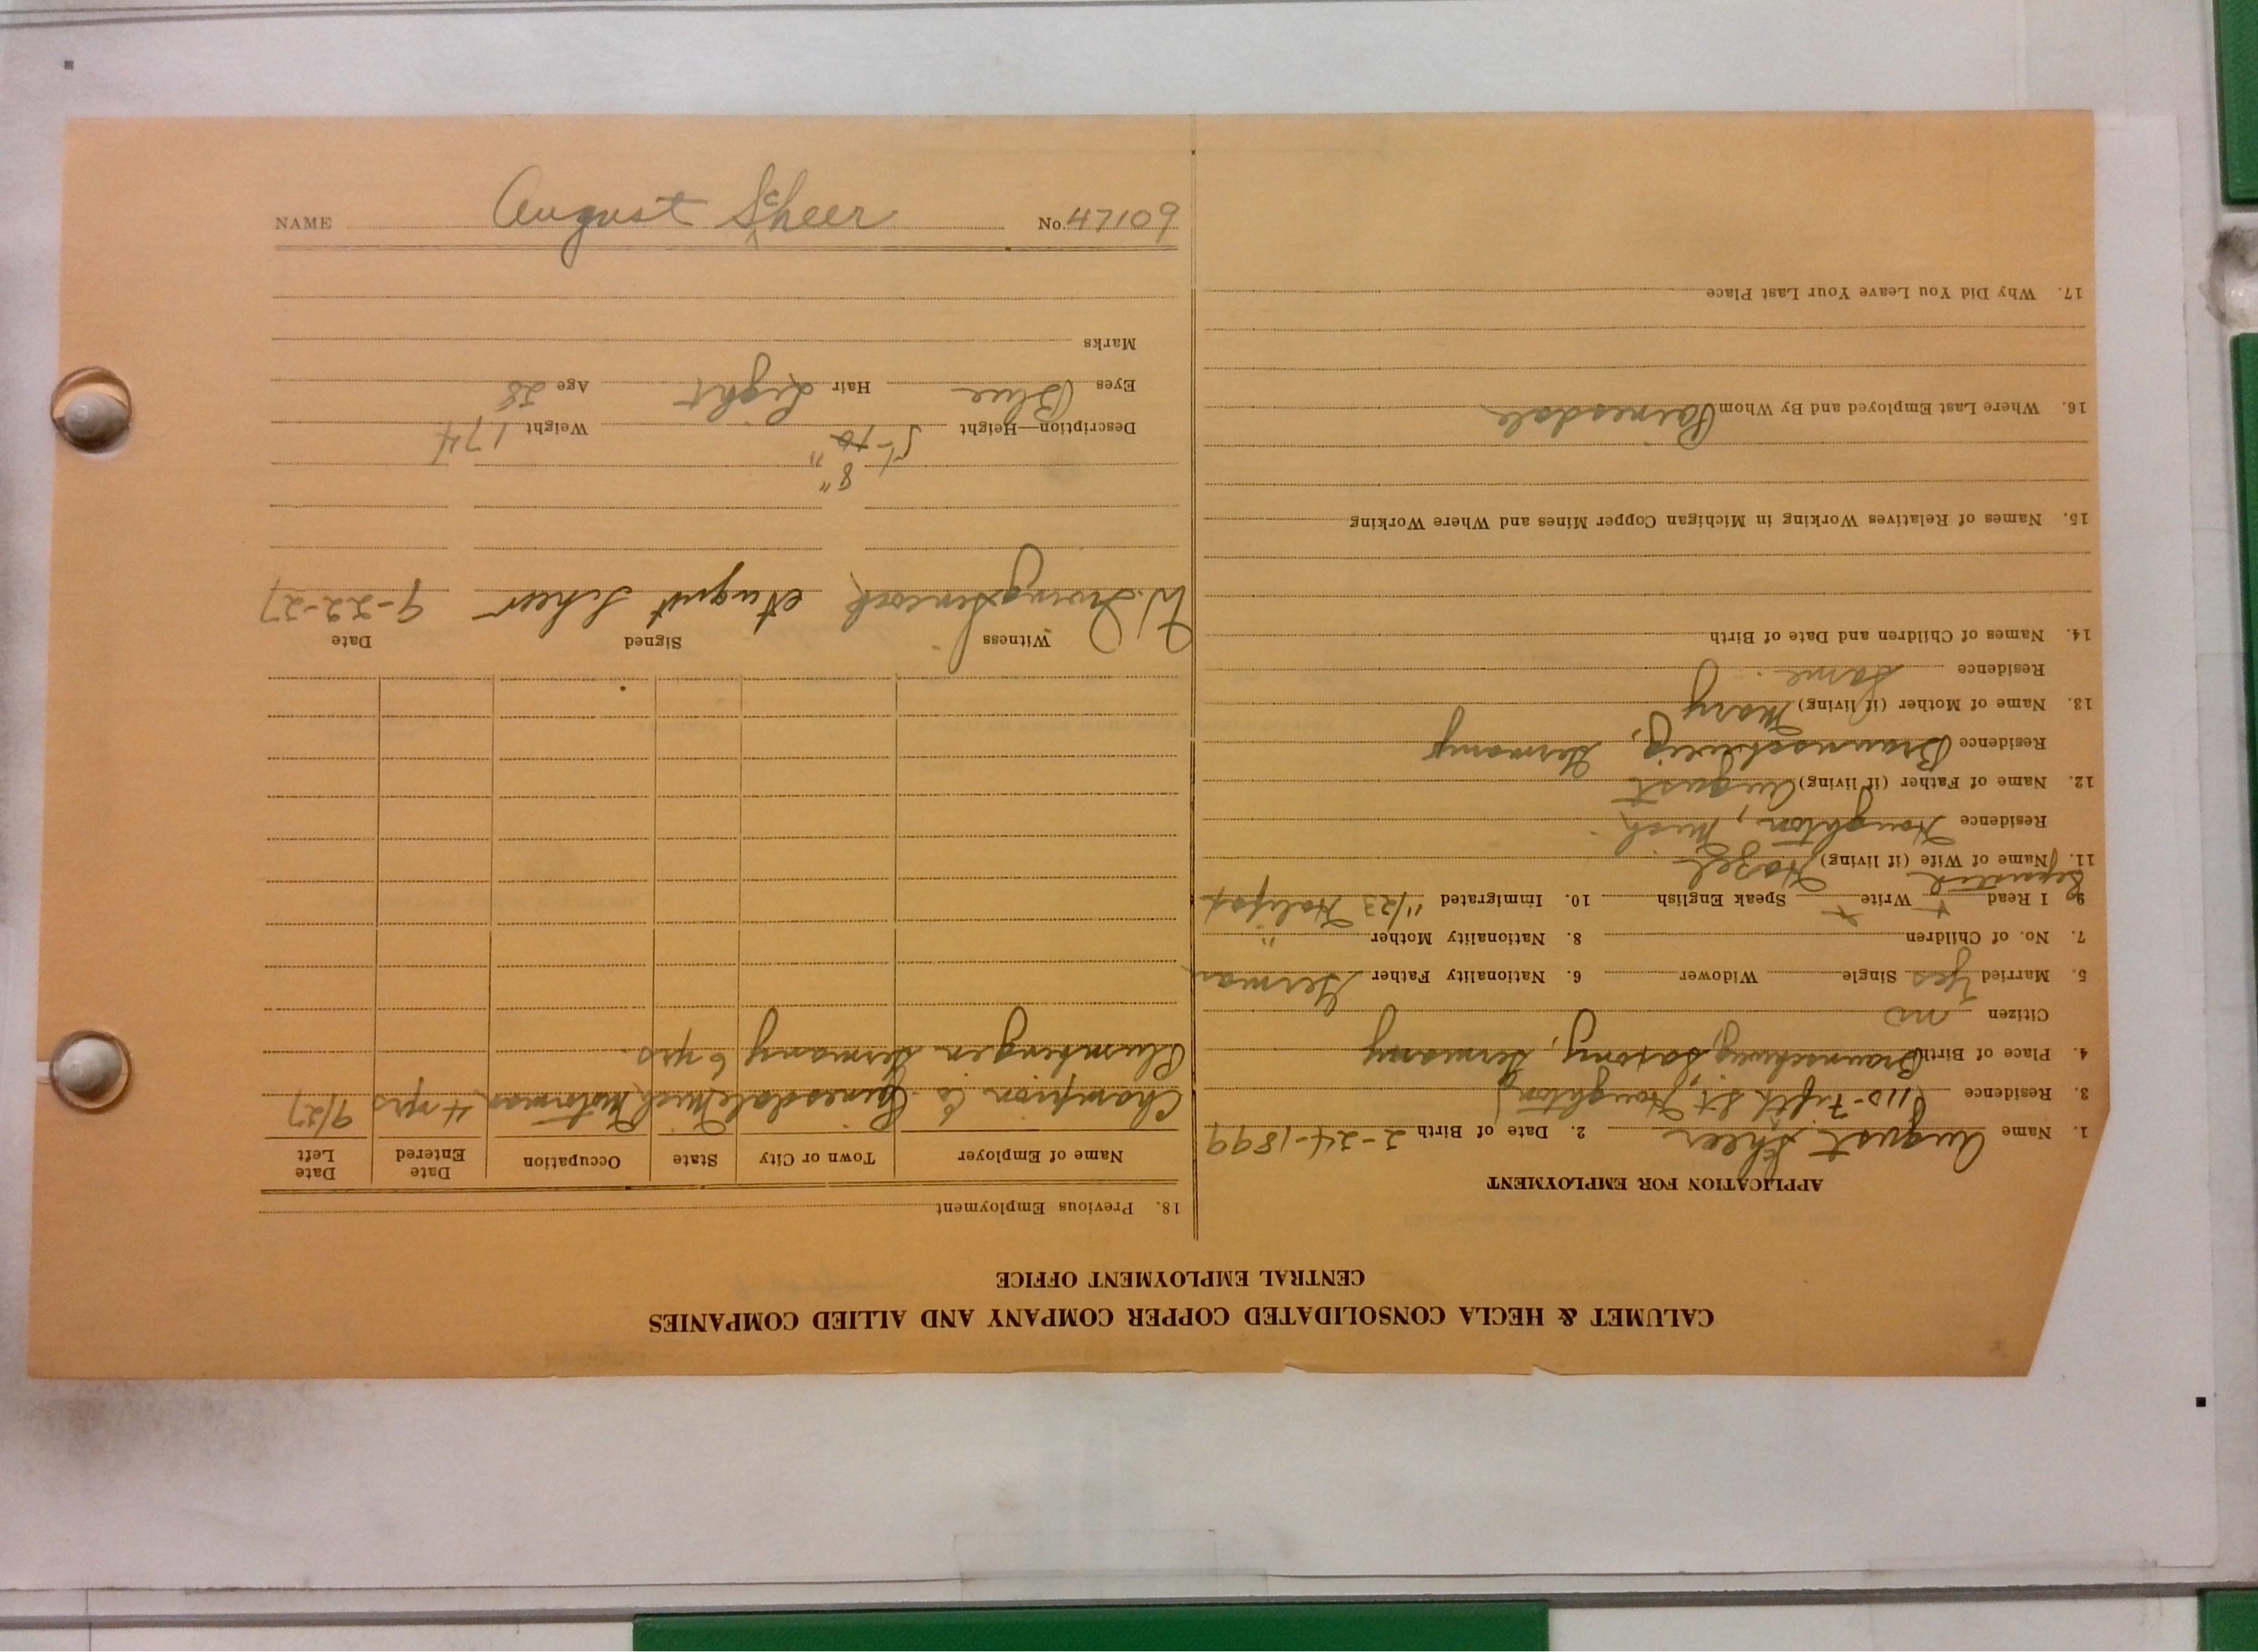 NAME August Scheer No. 47109
CALUMET & HECLA CONSOLIDATED COPPER COMPANY AND ALLIED COMPANIES
CENTRAL EMPLOYMENT OFFICE
APPLICATION FOR EMPLOYMENT
1. Name August Scheer 2. Date of Birth 2-24-1899
3. Residence (110-Fifth St., Houghton)
4. Place of Birth Braunschweig, Saxony, Germany
Citizen no
5. Married Yes Single Widower 6. Nationality Father German
7. No. of Children 8. Nationality Mother "
9 I Read x Write x Speak English 10. Immigrated 11/23 Halifax
Separated
11. Name of Wife (if living) Hazel
Residence Houghton, Mich
12. Name of Father (if living) August
Residence Braunschweig, Germany
13. Name of Mother (if living) Mary
Residence Same
14. Names of Children and Date of Birth
15. Names of Relatives Working in Michigan Copper Mines and Where Working
16. Where Last Employed and By Whom Painesdale
17. Why Did You Leave Your Last Place
18. Previous Employment
Name of Employer Town or City State Occupation Date Entered Date Left
Champion Co Painesdale Mich Motorman 4 yrs 9/27
Germany 6 yrs.
Witness Signed Date
W. August Scheer 9-22-27
8"
Description—Height 5-10" Weight 174
Eyes Blue Hair Light Age 28
Marks